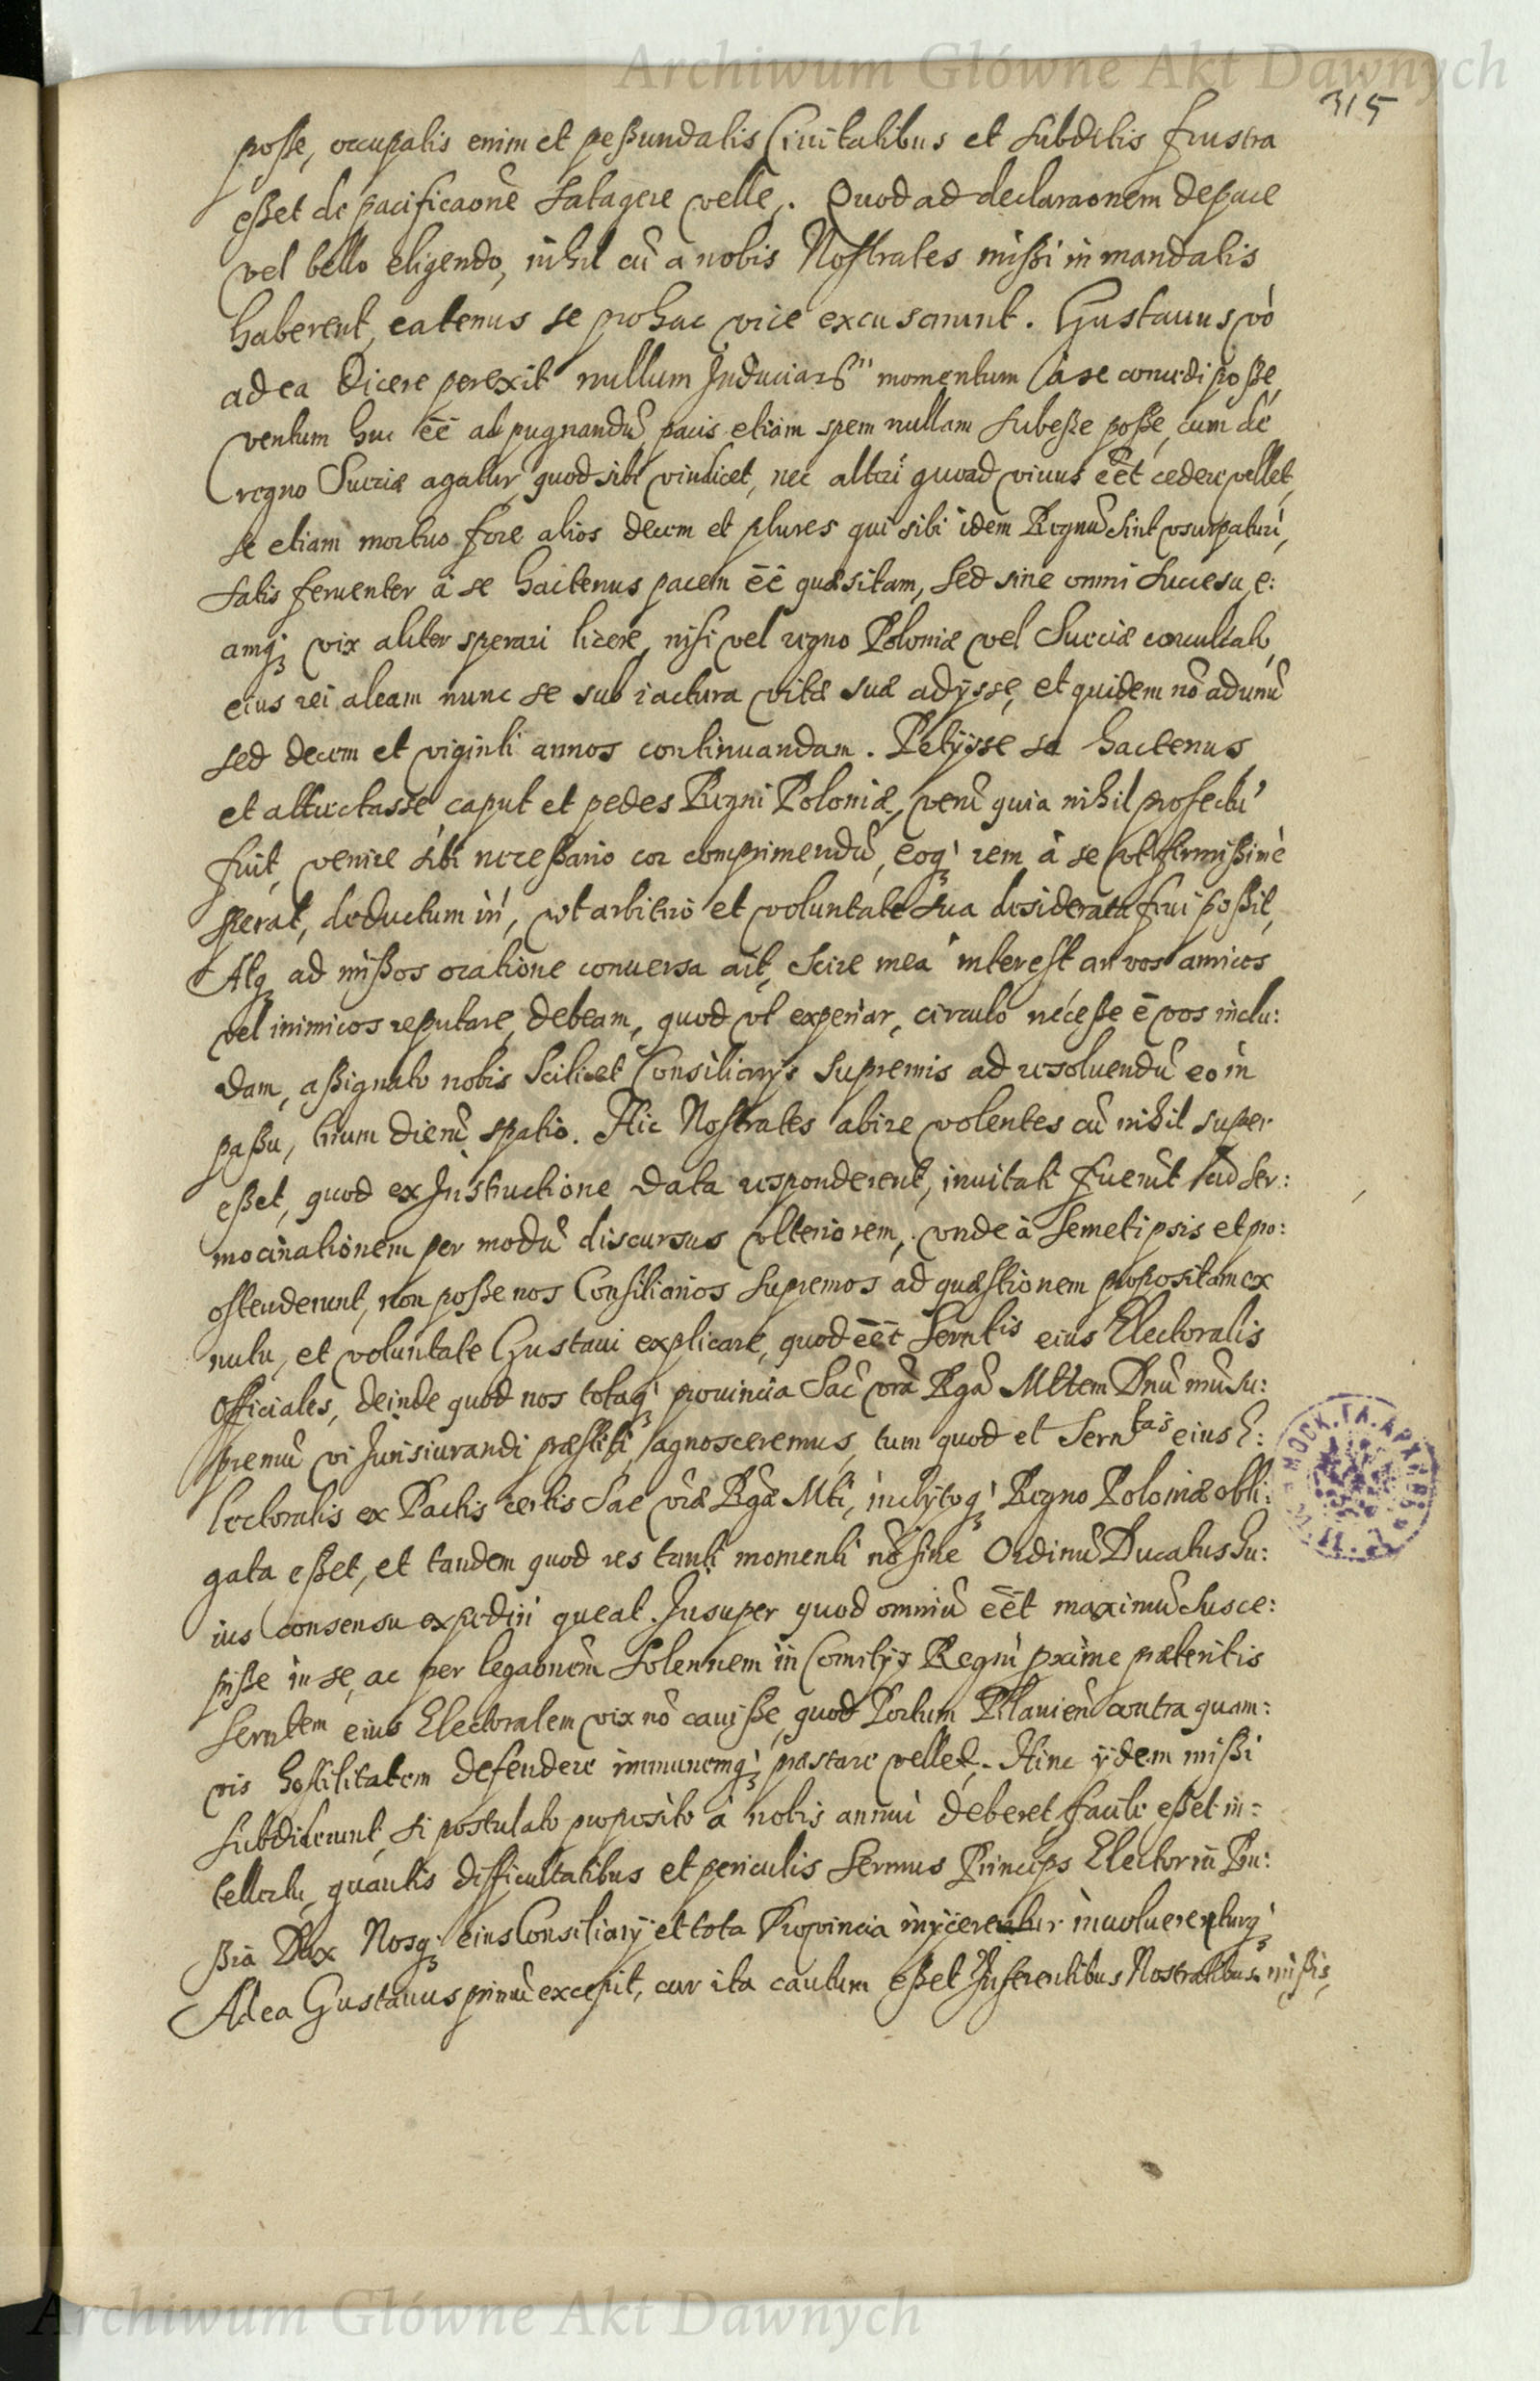 Archiwum Główne Akt Dawnych
315
posse, occupatis enim et peßundatis Ciuitatibus et subditis frustra
eßet de pacificaone satagere velle. Quod ad declaraonem de pace
vel bello eligendo, nihil cũ a nobis Nostrates mißi in mandatis
haberent, eatenus se pro hac vice excusarunt. Gustauus vò
ad ea dicere perexit nullum Induciarũ momentum à se concedi poße,
ventum huc ẽẽ ad pugnandũ, pacis etiam spem nullam subeße poße, cum de
regno Sueciæ agatur, quod sibi vindicet, nec alteri quoad viuus ẽẽt cedere vellet,
se etiam mortuo fore alios decem et plures qui sibi idem Regnũ sint vsurpaturi,
satis feruenter à se hactenus pacem ẽẽ quæsitam, sed sine omni successu, e:
amq; vix aliter sperari licere, nisi vel regno Poloniæ vel Sueciæ conculcato,
eius rei aleam nunc se sub iactura vitæ suæ adysse, et quidem nõ ad unũ
sed decem et viginti annos continuandam. Petysse se hactenus
et attrectasse caput et pedes Regni Poloniæ, verũ quia nihil profectũ
fuit, venire sibi necessario cor comprimendũ, eoq; rem à se vt firmißimè
sperat, deductum iri, vt arbitrio et voluntate sua desiderata frui poßit,
Atq; ad mißos oratione conuersa ait, Scire mea interest an vos amicos
vel inimicos reputare debeam, quod vt experiar, circulo neceße ẽ vos inclu:
dam, aßignato nobis scilicet Consiliarijs supremis ad resoluendũ eo in
paßu, trium dierũ spatio. Hic Nostrates abire volentes cũ nihil super
eßet, quod ex Instructione data responderent, inuitati fuerũt ad ser:
mocinationem per modũ discursus vlteriorem, vnde à semetipsis et pro:
ostenderunt, non poße nos Consiliarios supremos ad quæstionem propositam ex
nutu, et voluntate Gustaui explicare, quod ẽẽt Serntis eius Electoralis
Officiales, deinde quod nos totaq; prouincia Sac̃ vrã Rgã Mttem Dnũ nrũ su:
premũ vi Jurisiurandi præstiti agnosceremus, tum quod et Serntas eius E:
lectoralis ex Pactis certis Sac̃ vræ Rgæ Mti, inclytoq; Regno Poloniæ obli:
gata eßet, et tandem quod res tanti momenti nõ sine Ordinũ Ducatus hu:
ius consensu expediri queat. Insuper quod omniũ ẽẽt maximũ susce:
piße in se, ac per legaonem solennem in Comitijs Regni proxime præteritis
Serntem eius Electoralem vix nõ cauiße, quod Portum Pilauien̄ contra quam:
vis hostilitatem defendere immunemq; præstare vellet. Hinc ijdem mißi
subdiderunt, si postulato proposito à nobis annui deberet, facile eßet in:
tellectu, quantis difficultatibus et periculis Sermus Princeps Elector in Pru:
ßia Dux Nosq; eius Consiliarij et tota Prouincia inijcerentur inuoluerenturq;
Ad ea Gustauus primũ excepit, cur ita cautum eßet? Inferentibus Nostratibus mißis,
МОСК.ГЛ.АРХИВ
Archiwum Główne Akt Dawnych